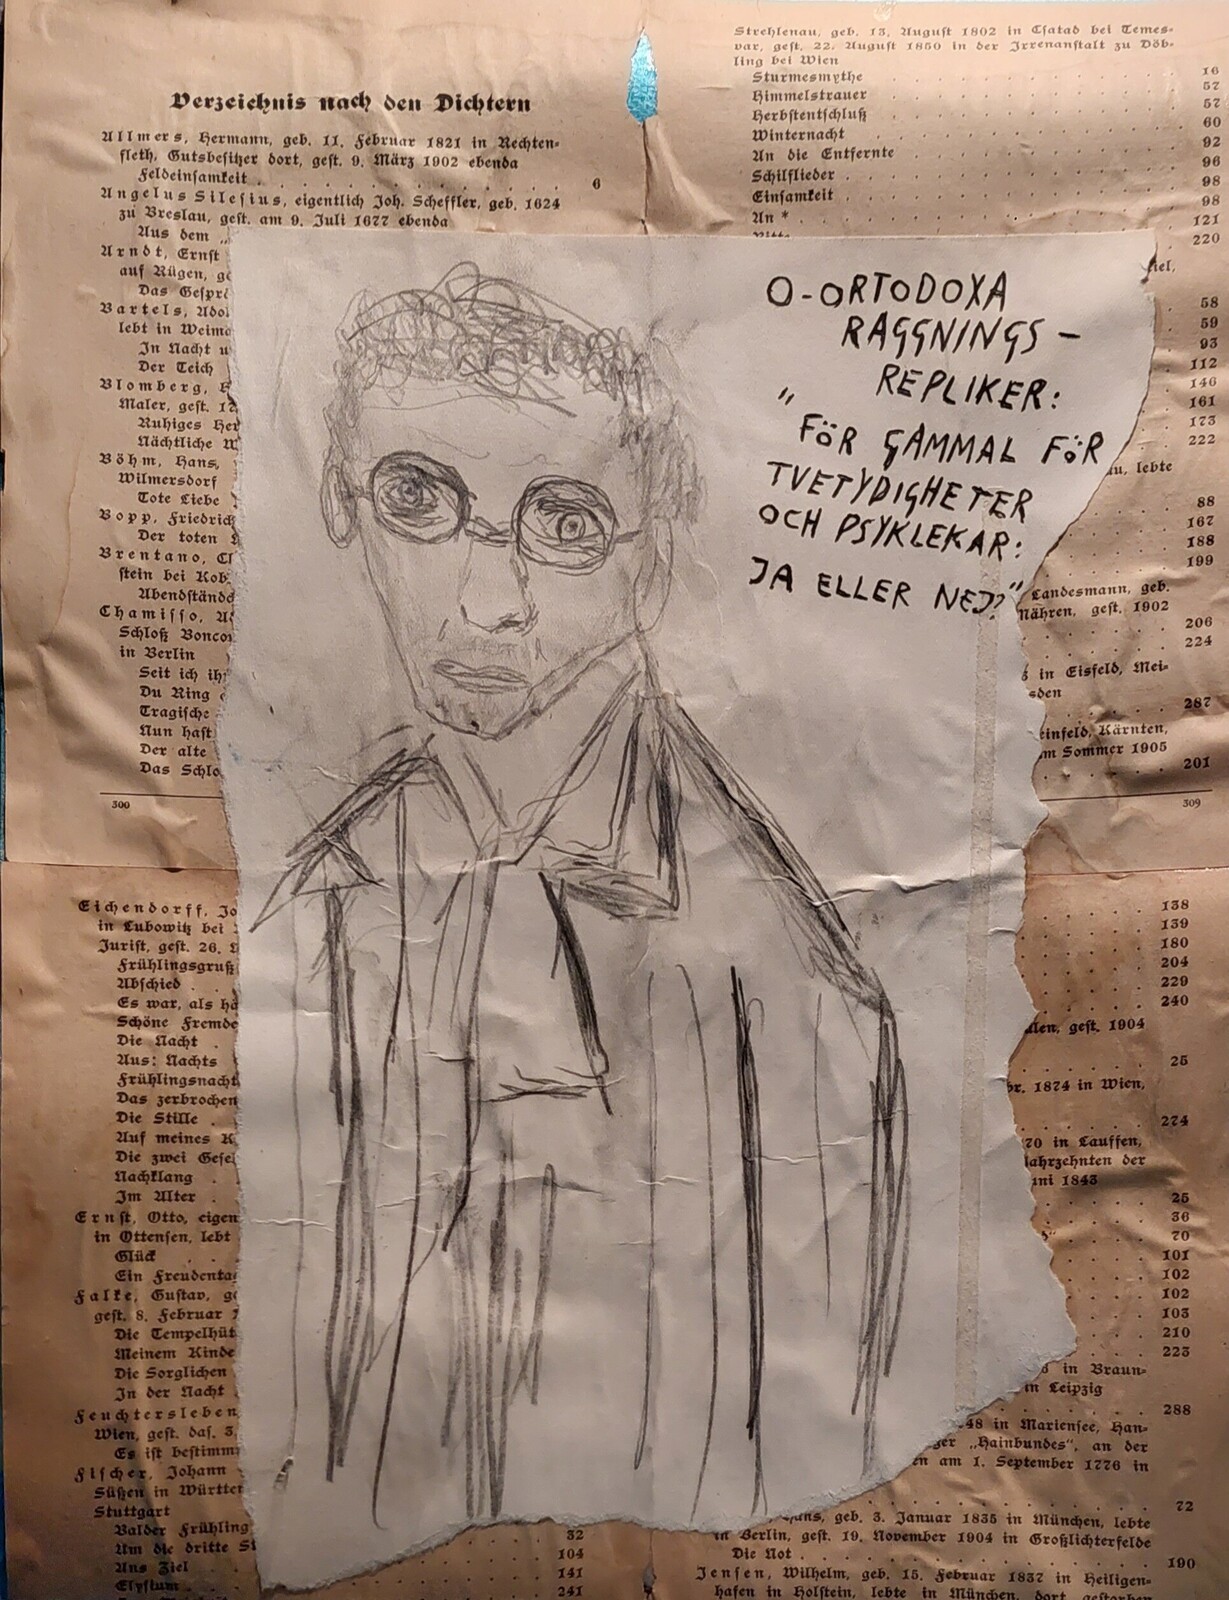 Verzeichnis nach den Dichtern
Allmers, Hermann, geb. 11. Februar 1821 in Rechten-
fleth, Gutsbesitzer dort, gest. 9. März 1902 ebenda
Feldeinsamkeit . . . 6
Angelus Silesius, eigentlich Joh. Scheffler, geb. 1624
zu Breslau, gest. am 9. Juli 1677 ebenda
Aus dem „
Arndt, Ernst
auf Rügen,
Das
Bartels,
lebt in
In Nacht
Der Teich
Blomberg,
Maler, gest.
Ruhiges
Nächtliche
Böhm, Hans,
Wilmersdorf
Tote Liebe
Bopp,
Der toten
Brentano,
stein bei
Chamisso,
Schloß
in Berlin
Seit ich
Du Ring
Tragische
Nun hast
Der alte
Das
300
Strehlenau, geb. 13. August 1802 in Csatad bei Temes-
var, gest. 22. August 1850 in der Irrenanstalt zu Döb-
ling bei Wien
Sturmesmythe . . . 16
Himmelstrauer . . . 57
Herbstentschluß . . . 57
Winternacht . . . 60
An die Entfernte . . . 92
Schilflieder . . . 96
Einsamkeit . . . 98
An * . . . 98
121
220
58
59
93
112
146
161
173
222
lebte
88
167
188
199
Landesmann, geb.
Mähren, gest. 1902
206
224
in Eisfeld, Mei-
287
Kärnten,
Sommer 1905
201
309
O-ORTODOXA
RAGGNINGS-
REPLIKER:
"FÖR GAMMAL FÖR
TVETYDIGHETER
OCH PSYKLEKAR:
JA ELLER NEJ?"
Eichendorff,
in Lubowitz bei
Jurist, gest. 26.
Frühlingsgruß
Abschied
Es war, als
Schöne
Die Nacht
Aus: Nachts
Frühlingsnacht
Das
Die Stille
Auf meines
Die zwei
Nachklang
Im Alter
Ernst, Otto,
in Ottensen, lebt
Glück
Ein
Falke, Gustav,
gest. 8. Februar
Die
Meinem
Die Sorglichen
In der Nacht
Feuchtersleben,
Wien, gest. das. 3.
Es ist
Fischer, Johann
Süßen in
Stuttgart
Balder
Am die dritte
Ans Ziel
Elysium
32
104
141
241
138
139
180
204
229
240
gest. 1904
25
1874 in Wien,
274
in Lauffen,
der
1843
25
36
70
101
102
102
103
210
223
in Braun-
in Leipzig
288
48 in Mariensee, Han-
„Hainbundes", an der
am 1. September 1776 in
72
geb. 3. Januar 1835 in München, lebte
in Berlin, gest. 19. November 1904 in Großlichterfelde
Die Not . . . 190
Jensen, Wilhelm, geb. 15. Februar 1837 in Heiligen-
hafen in Holstein, lebte in München, dort gestorben